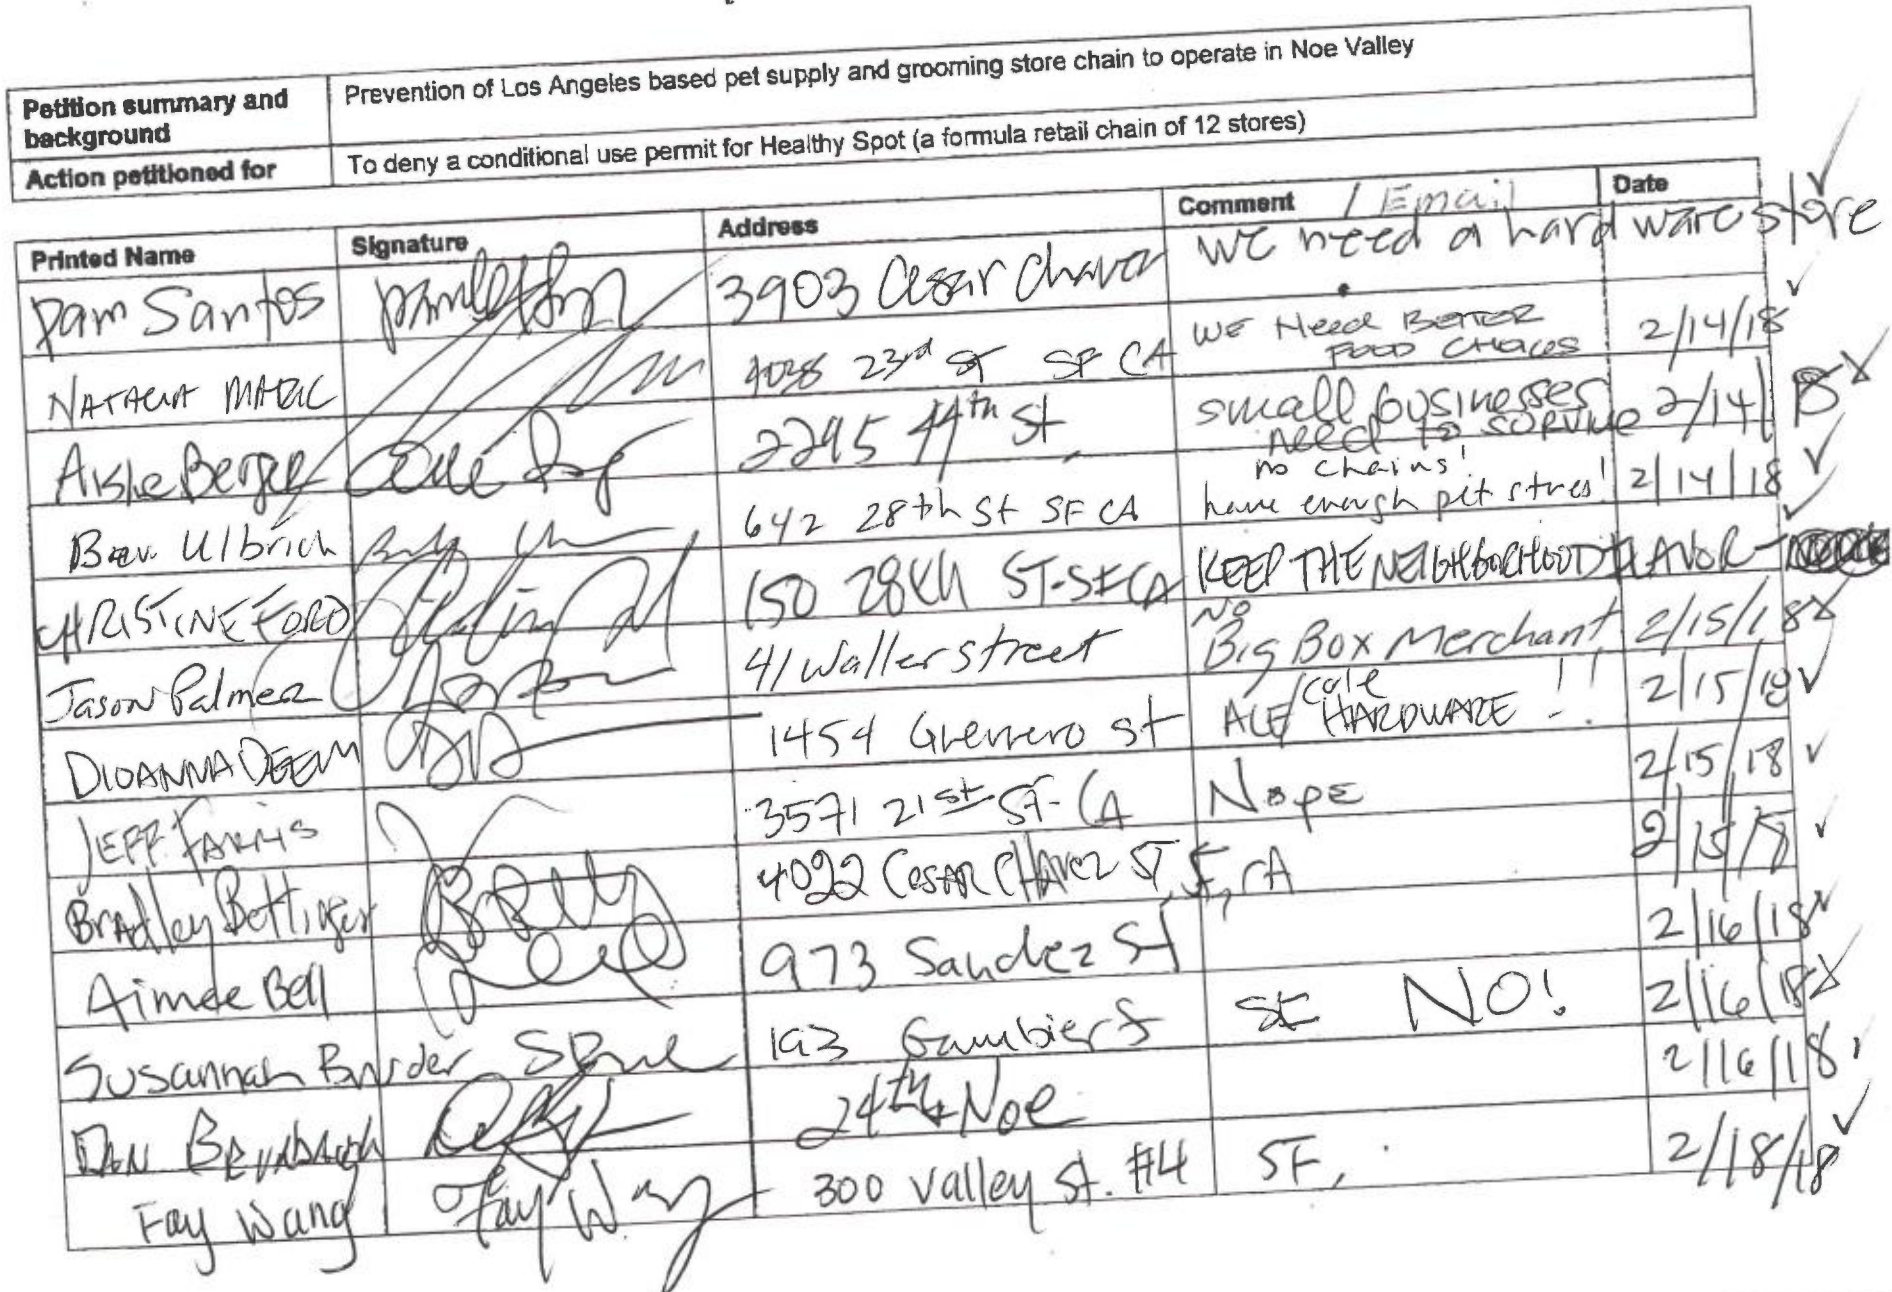 Petition summary and background Prevention of Los Angeles based pet supply and grooming store chain to operate in Noe Valley
Action petitioned for To deny a conditional use permit for Healthy Spot (a formula retail chain of 12 stores)
Printed Name Signature Address Comment / Email Date
Pam Santos 3903 Cesar Chavez We need a hardware store
4038 23rd St SF CA WE Need BETTER FOOD CHOICES 2/14/18
Berger 2295 44th St, small businesses need to SURVIVE 2/14/18
Ulbrich 642 28th St SF CA no chains! have enough pet stores! 2/14/18
CHRISTINE FORD 150 28th ST-SF CA KEEP THE NEIGHBORHOOD FLAVOR
Jason Palmer 41 Waller street No Big Box Merchant 2/15/18
DIOANNA DEEM 1454 Guerrero st ACE/Cole HARDWARE !! 2/15/18
JEFF FARRIS 3571 21st SF CA NOPE 2/15/18
Bradley Bottinger 4022 CESAR CHAVEZ ST, SF, CA 2/15/18
Aimee Bell 973 Sanchez St 2/16/18
Susannah 193 Gambier St SF NO! 2/16/18
DAN 24th & Noe 2/16/18
Fay Wang Fay Wang 300 Valley St. #4 SF, 2/18/18